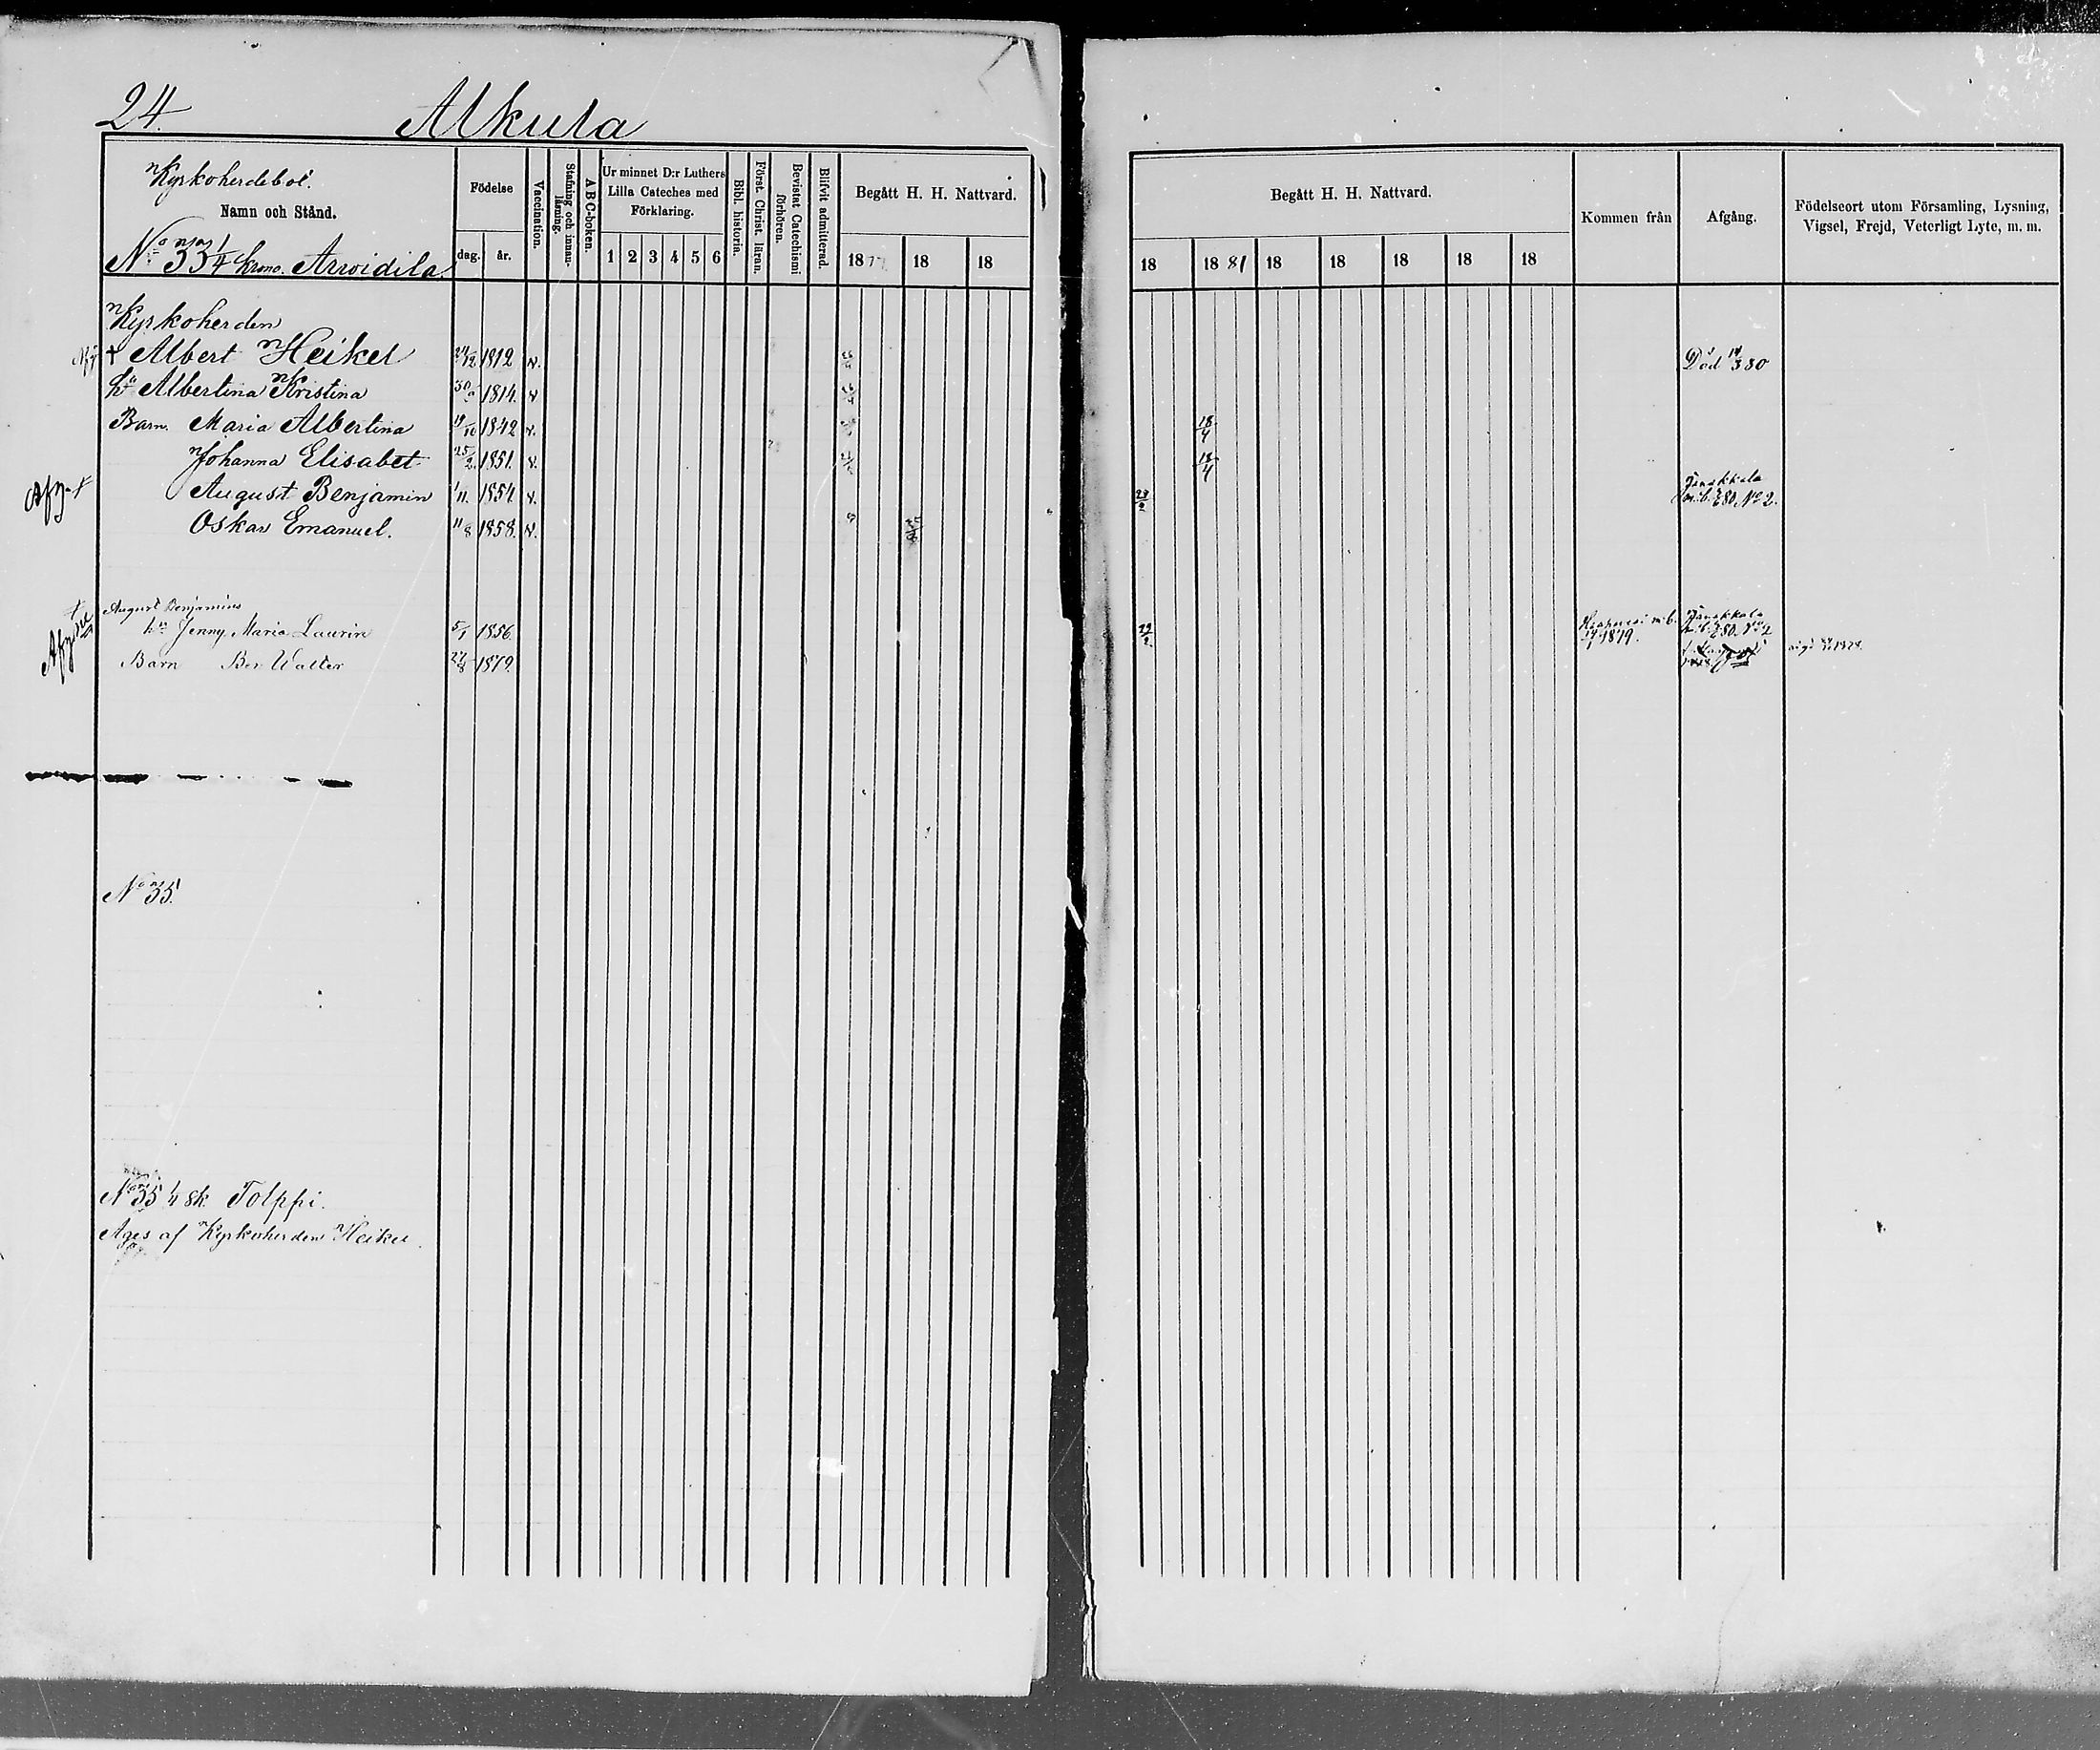 24. Alkula
Kyrkoherdebol.
Namn och Stånd.
No 33 1/4 krono. Arvoidila
Födelse
dag. år.
Vaccination.
Stafning och innan-läsning.
A B C-boken.
Ur minnet D:r Luthers
Lilla Cateches med
Förklaring.
1 2 3 4 5 6
Bibl. historia.
Först. Christ. läran.
Bevistat Catechismi förhören.
Blifvit admitterad.
Begått H. H. Nattvard.
1877 18 18
Begått H. H. Nattvard.
18 18 81 18 18 18 18 18
Kommen från
Afgång.
Födelseort utom Församling, Lysning,
Vigsel, Frejd, Veterligt Lyte, m. m.
Kyrkoherden
† Albert Heikel 24/12 1812 v. Död 14/3 80
hu Albertina Kristina 1814. v
Barn. Maria Albertina 19/10 1842 v. 18/4
Johanna Elisabet 25/2 1851. v. 18/4
August Benjamin 1/11 1854. v. Janakkala
m.b. 80. No 2.
Oskar Emanuel. 11/8 1858. v.
August Benjamins
hu Jenny Maria Laurin 5/1 1856. m.b. 1879. Janakkala
m.b. 80. No 2
Barn Ber Walter 27/8 1879.
No 35.
No 35 1/4 sk. Tolppi.
Ages af Kyrkoherden Heikel.